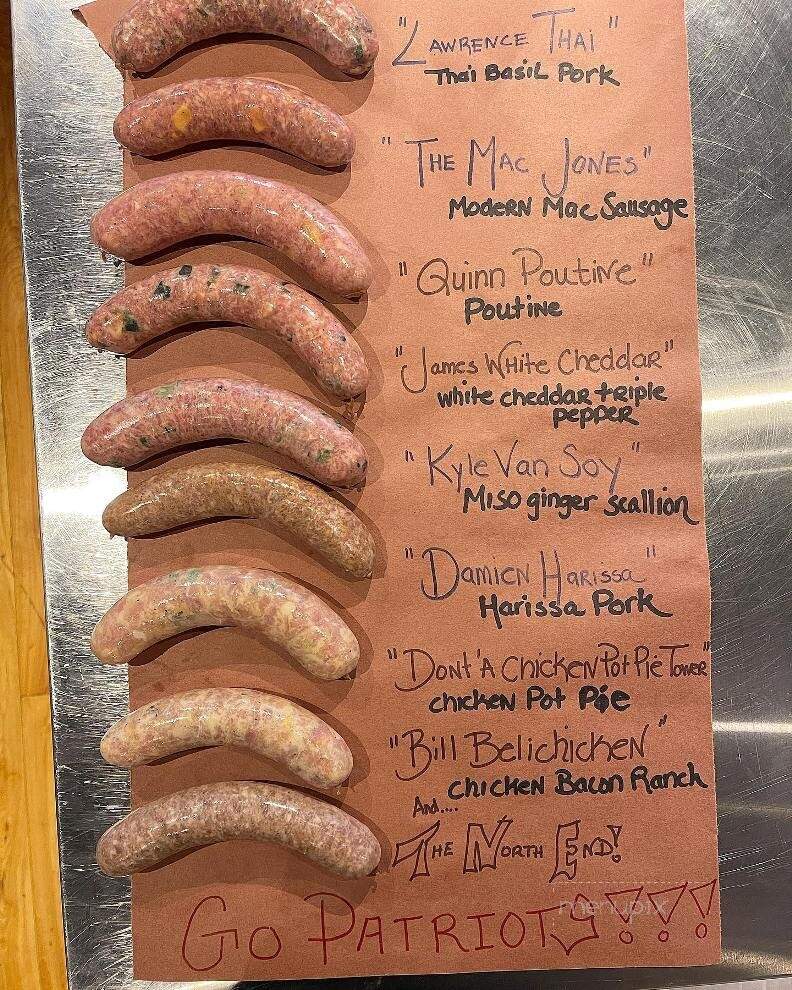 "LAWRENCE THAI"
Thai BasiL Pork
"THE MAC JONES"
MODERN Mac Sausage
"Quinn Poutine"
Poutine
"James WHite Cheddar"
white cheddar triple
pepper
"Kyle Van Soy"
Miso ginger scallion
"Damien Harissa"
Harissa Pork
"Dont'A Chicken Pot Pie Tower"
chicken Pot Pie
"Bill Belichicken"
chicken Bacon Ranch
And....
THE NORTH END!
GO PATRIOTS!!!
menupix